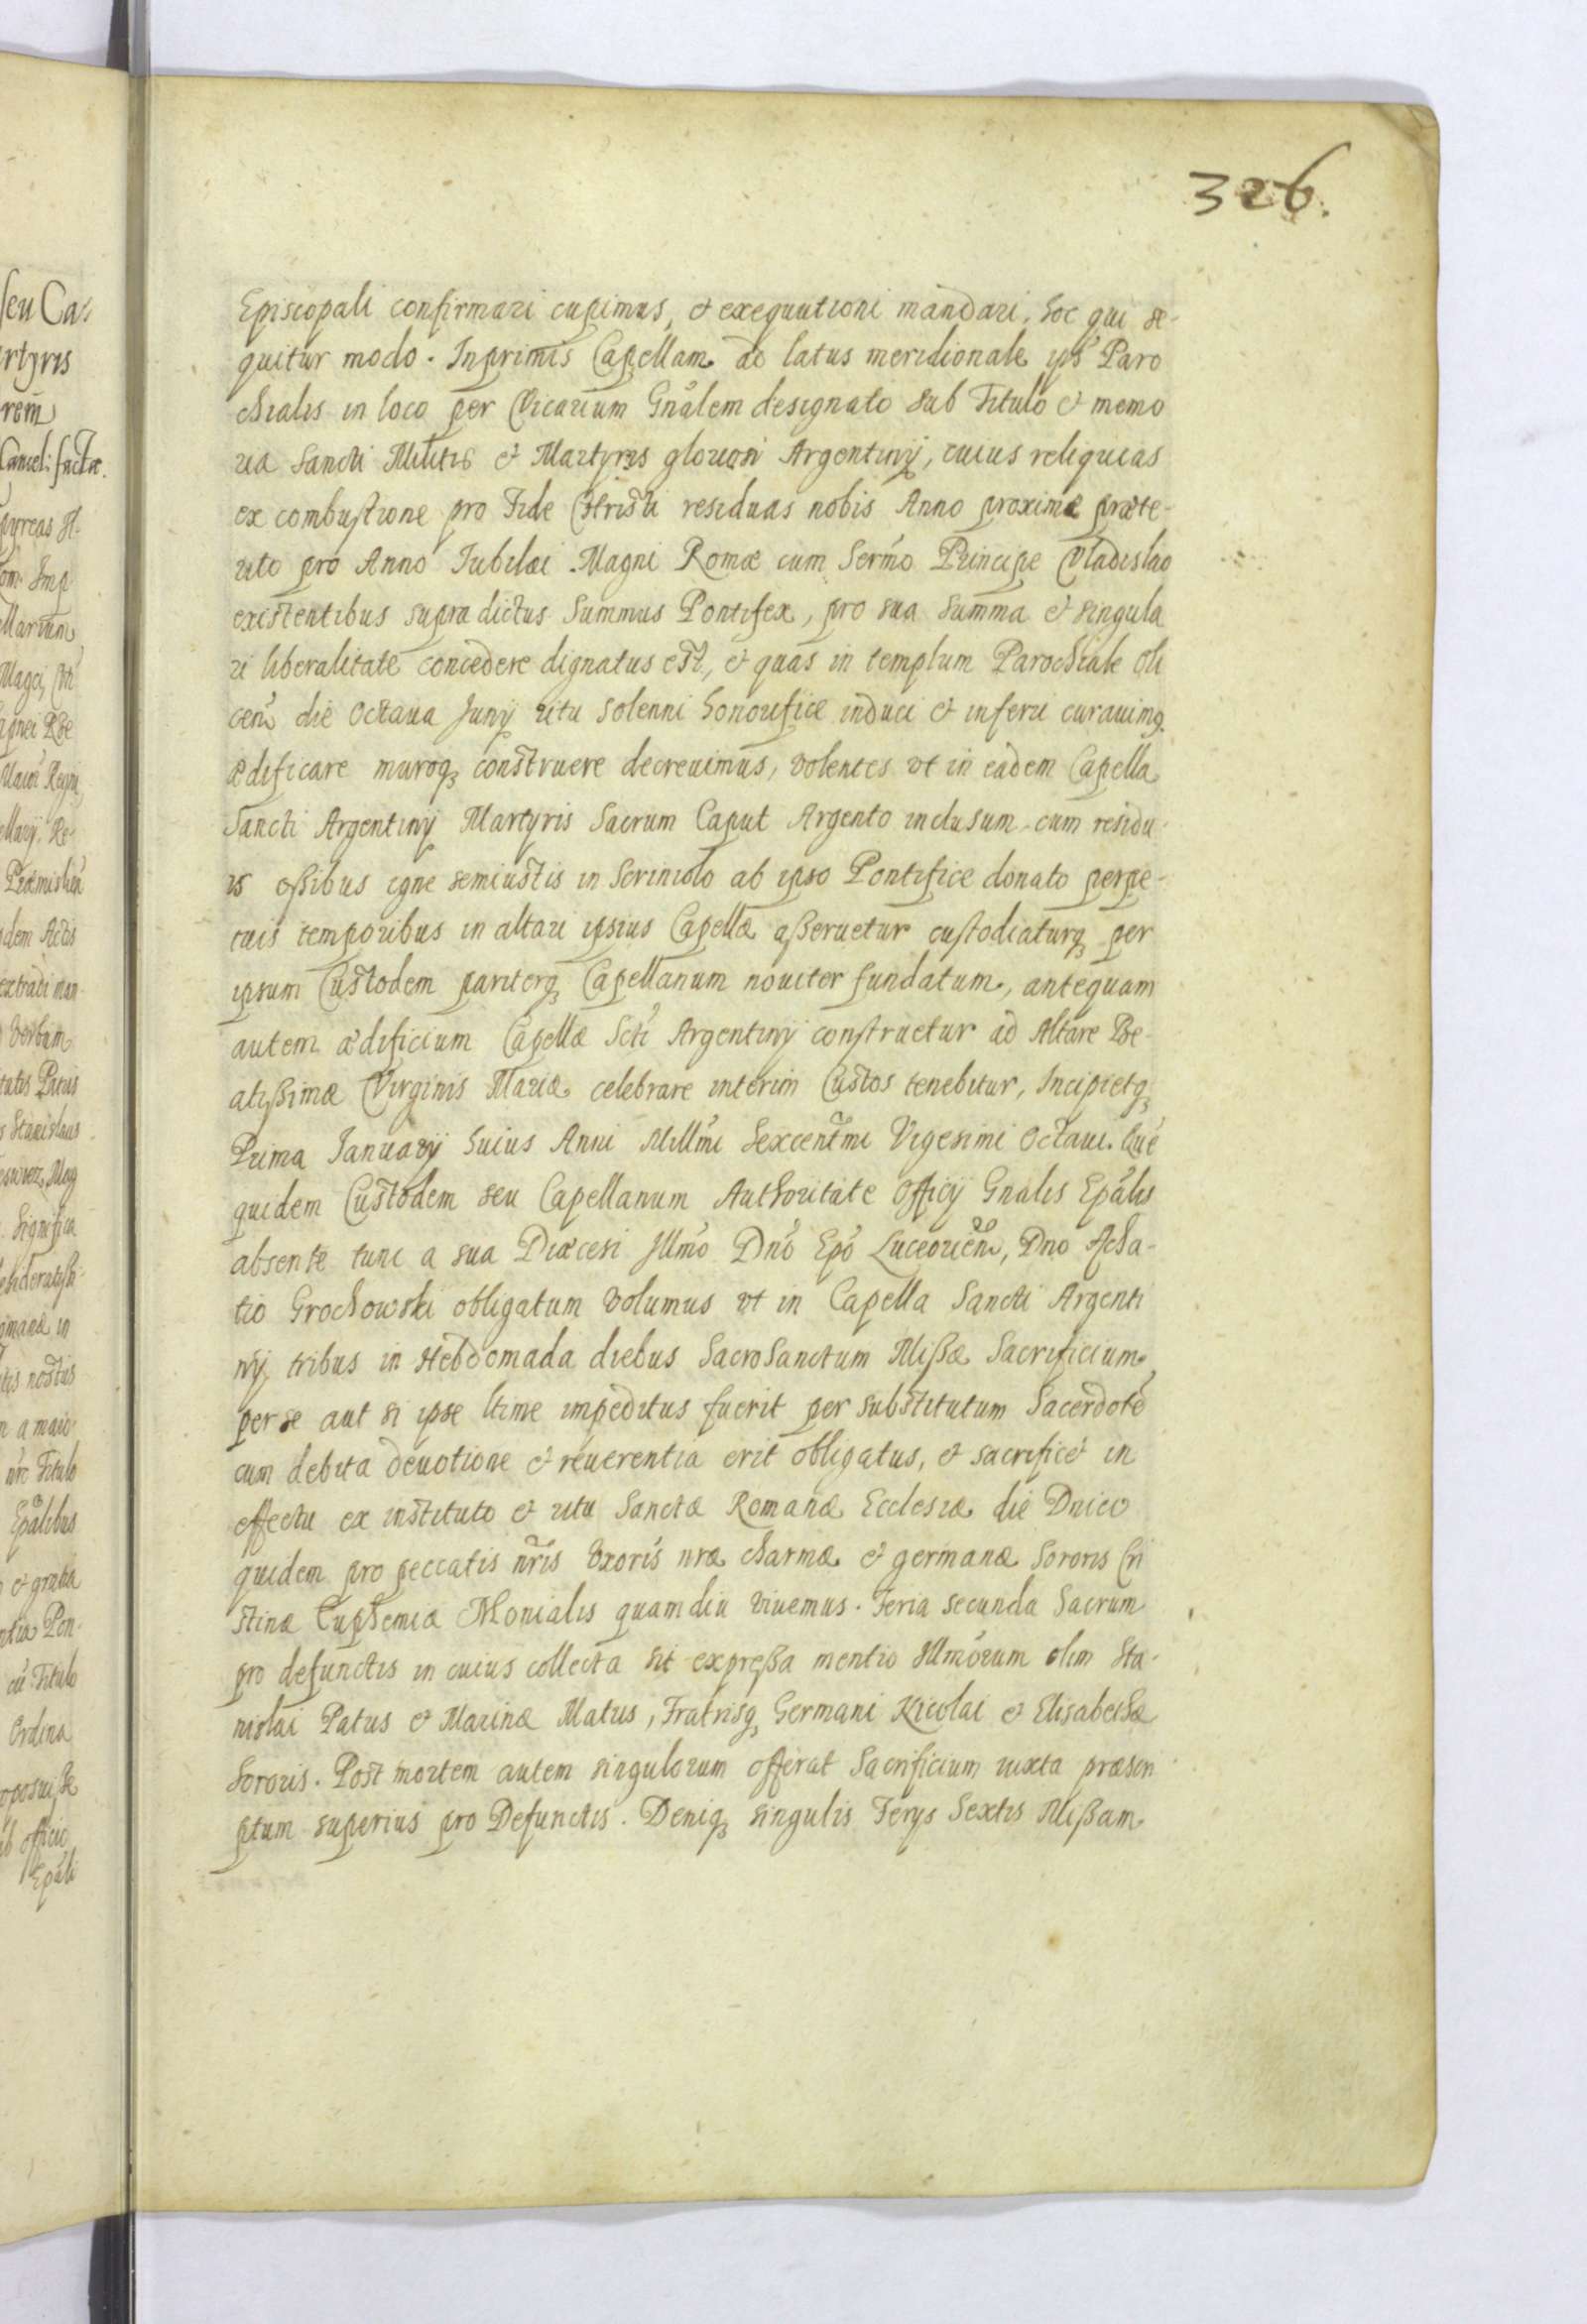 326.
Episcopali confirmari cupimus, et exequutioni mandari, hoc qui se-
quitur modo. Inprimis Capellam ad latus meridionale ips' Paro
chialis in loco per Vicarium Gnalem designato sub Titulo et memo
ria Sancti Militis et Martyris gloriosi Argentinij, cuius reliquias
ex combustione pro Fide Christi residuas nobis Anno proxime præte-
rito pro Anno Iubilæi Magni Romæ cum Sermo Principe Vladislao
existentibus supra dictus Summus Pontifex, pro sua summa et singula
ri liberalitate concedere dignatus est, et quas in templum Parochiale Oli
cen die Octaua Junij ritu solenni honorifice induci et inferri curauimq
ædificare muroq construere decreuimus, volentes vt in eadem Capella
Sancti Argentinij Martyris Sacrum Caput Argento inclusum cum residu-
is ossibus igne semiustis in Scriniolo ab ipso Pontifice donato perpe-
tuis temporibus in altari ipsius Capellæ asseruetur custodiaturq per
ipsum Custodem pariterq Capellanum nouiter fundatum, antequam
autem ædificium Capellæ Scti Argentinij construetur ad Altare Be-
atissimæ Virginis Mariæ celebrare interim Custos tenebitur, Incipietq
Prima Januarij huius Anni Millmi Sexcentmi Vigesimi Octaui. Que
quidem Custodem seu Capellanum Authoritate Officij Gnalis Epalis
absente tunc a sua Diæcesi Illmo Dno Epo Luceorien, Dno Acha-
tio Grochowski obligatum volumus vt in Capella Sancti Argenti
nij tribus in Hebdomada diebus SacroSanctum Missæ Sacrificium
per se aut si ipse ltime impeditus fuerit per substitutum Sacerdote
cum debita deuotione et reuerentia erit obligatus, et sacrificet in
effectu ex instituto et ritu Sanctæ Romanæ Ecclesiæ die Dnico
quidem pro peccatis nris Vxoris nræ charmæ et germanæ Sororis Cri
stinæ Euphemiæ Monialis quamdiu viuemus. Feria secunda Sacrum
pro defunctis in cuius collecta sit expressa mentio Illmorum olim Sta-
nislai Patris et Marinæ Matris, Fratrisq Germani Nicolai et Elisabethæ
Sororis. Post mortem autem singulorum offerat Sacrificium iuxta præscri
ptum superius pro Defunctis. Deniq singulis Ferijs Sextis Missam